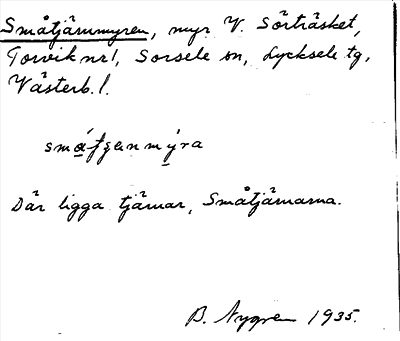 Småtjärnmyren, myr V. Sörträsket,
Torvik nr 1, Sorsele sn, Lycksele tg,
Västerb. l.
Där ligga tjärnar, Småtjärnarna.
B. Nygren 1935.